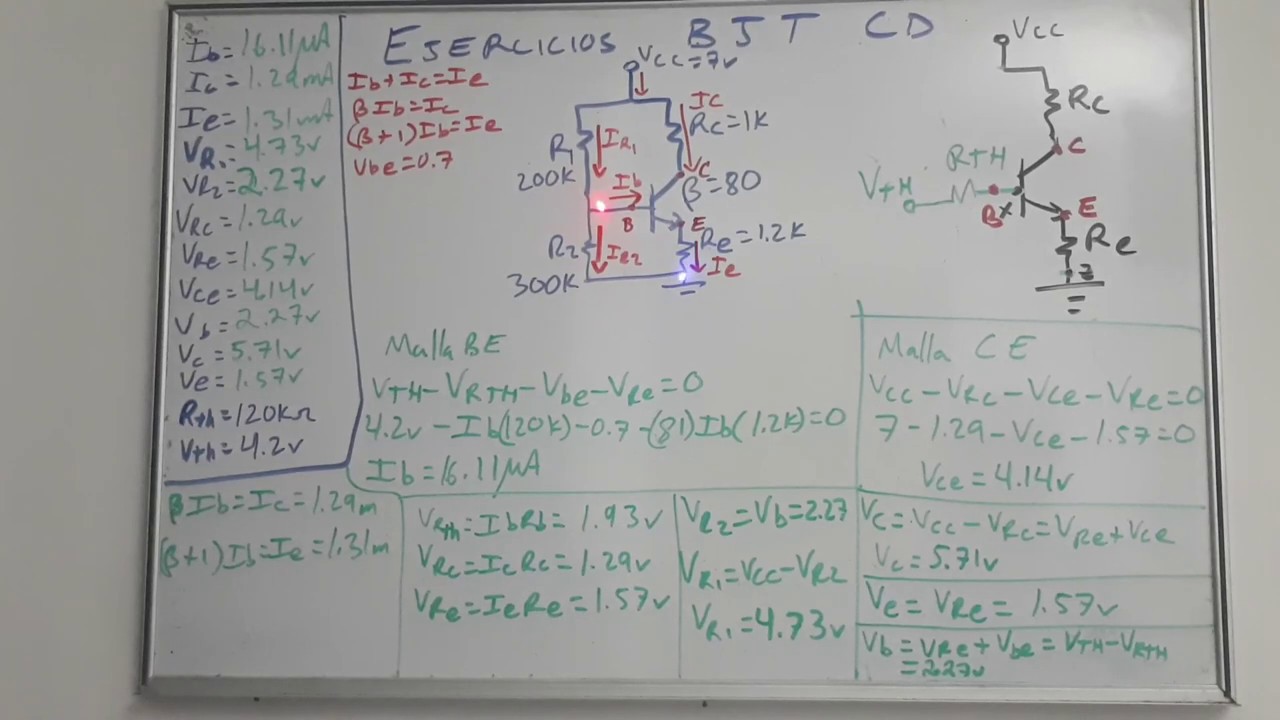 EJERCICIOS BJT CD
Ib=16.11μA
Ic=1.29mA
Ie=1.31mA
VR1=4.73v
VR2=2.27v
VRc=1.29v
VRe=1.57v
Vce=4.14v
Vb=2.27v
Vc=5.71v
Ve=1.57v
Rth=120KΩ
Vth=4.2v
Ib+Ic=Ie
βIb=Ic
(β+1)Ib=Ie
Vbe=0.7
Vcc=7v
R1
200K
IR1
Ic
Rc=1K
C
β=80
Ib
B
E
R2
300K
Ie2
Re=1.2K
Ie
Vcc
Rc
C
RTH
VTH
B
E
Re
Malla BE
VTH-VRTH-Vbe-VRe=0
4.2v-Ib(120K)-0.7-(81)Ib(1.2K)=0
Ib=16.11μA
Malla CE
Vcc-VRc-Vce-VRe=0
7-1.29-Vce-1.57=0
Vce=4.14v
βIb=Ic=1.29m
(β+1)Ib=Ie=1.31m
VRth=IbRb=1.93v
VRc=IcRc=1.29v
VRe=IeRe=1.57v
VR2=Vb=2.27
VR1=Vcc-VR2
VR1=4.73v
Vc=Vcc-VRc=VRe+Vce
Vc=5.71v
Ve=VRe=1.57v
Vb=VRe+Vbe=VTH-VRTH
=2.27v